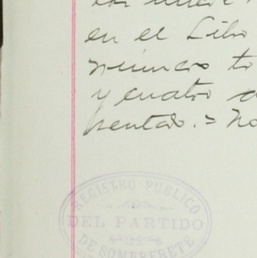 en el Libro
número to
y cuatro d
sentado.= No
REGISTRO PUBLICO
DEL PARTIDO
DE SOMBRERETE